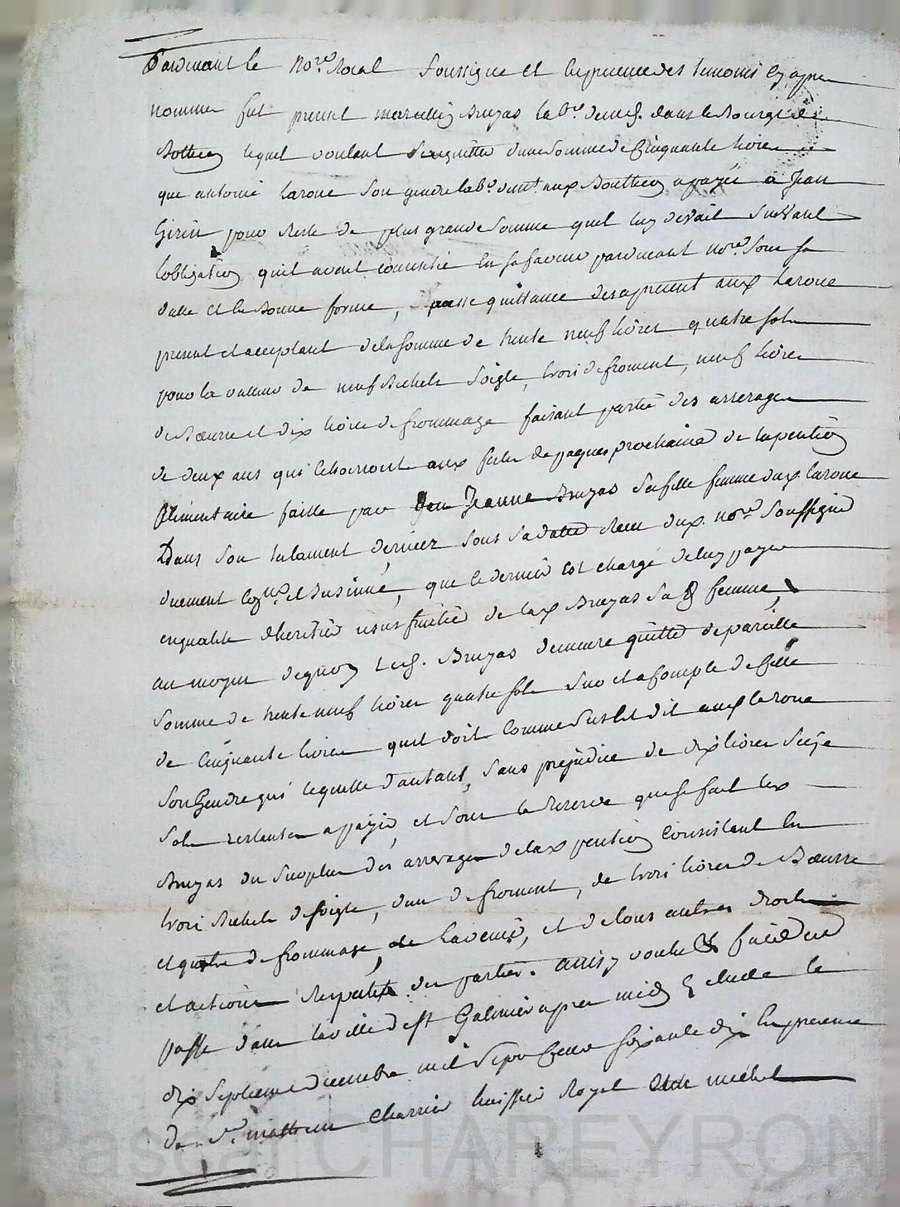 Pardevant le no.re Royal soussigné et en presence des temoins cy apres
nommés fut present marcelin Bruyas lab.r demeu.t dans le Bourg de
Bothéon lequel voulant s'acquitter d'une somme de Cinquante livres
que antoine Laroue son gendre lab.r dem.t aux Bouthéon a payée a Jean
Girin pour Reste de plus grande somme quel luy devait suivant
l'obligation quil avoit consentie en sa faveur pardevant no.re sous sa
datte et en Bonne forme, passe quittance des a present aud Laroue
present et acceptant de la somme de trente neuf livres quatre sols
pour la valeur de neuf Bichets soigle, trois de froment, neuf livres
de Bœurre et dix livres de frommage faisant partie des arrerages
de deux ans qui echoeront aux fetes de paques prochaines de la pention
alimentaire faitte par Jeanne Bruyas sa fille femme dud Laroue
Dans son testament dernier sous sa datte Receu dud no.re soussigné
duement et insinué, que le dernier est chargé de luy payer
en qualité d'heritier usufruitier de lad Bruyas sa femme,
au moyen de quoy led. Bruyas demeure quitte de pareille
somme de trente neuf livres quatre sols sur et a Compte de celle
de Cinquante livres quil doit comme sus est dit aud Laroue
son Gendre qui l'equitte d'autant, sans prejudice de dix livres seize
sols restantes a payer, et sous la Reserve que se fait led
Bruyas du surplus des arrerages de lad pention Consistant en
trois Bichets de soigle, un de froment, de trois livres de Bœurre
et quatre de frommage, de Lavenir, et de tous autres droits
et actions Respectifs des parties. ainsy voulu fait et
passé dans la ville de st Galmier apres midy l'etude le
dix septieme decembre mil sept Cent soixante dix En presence
de S.r mathieu Charrin huissier Royal michel
Pascal CHAREYRON